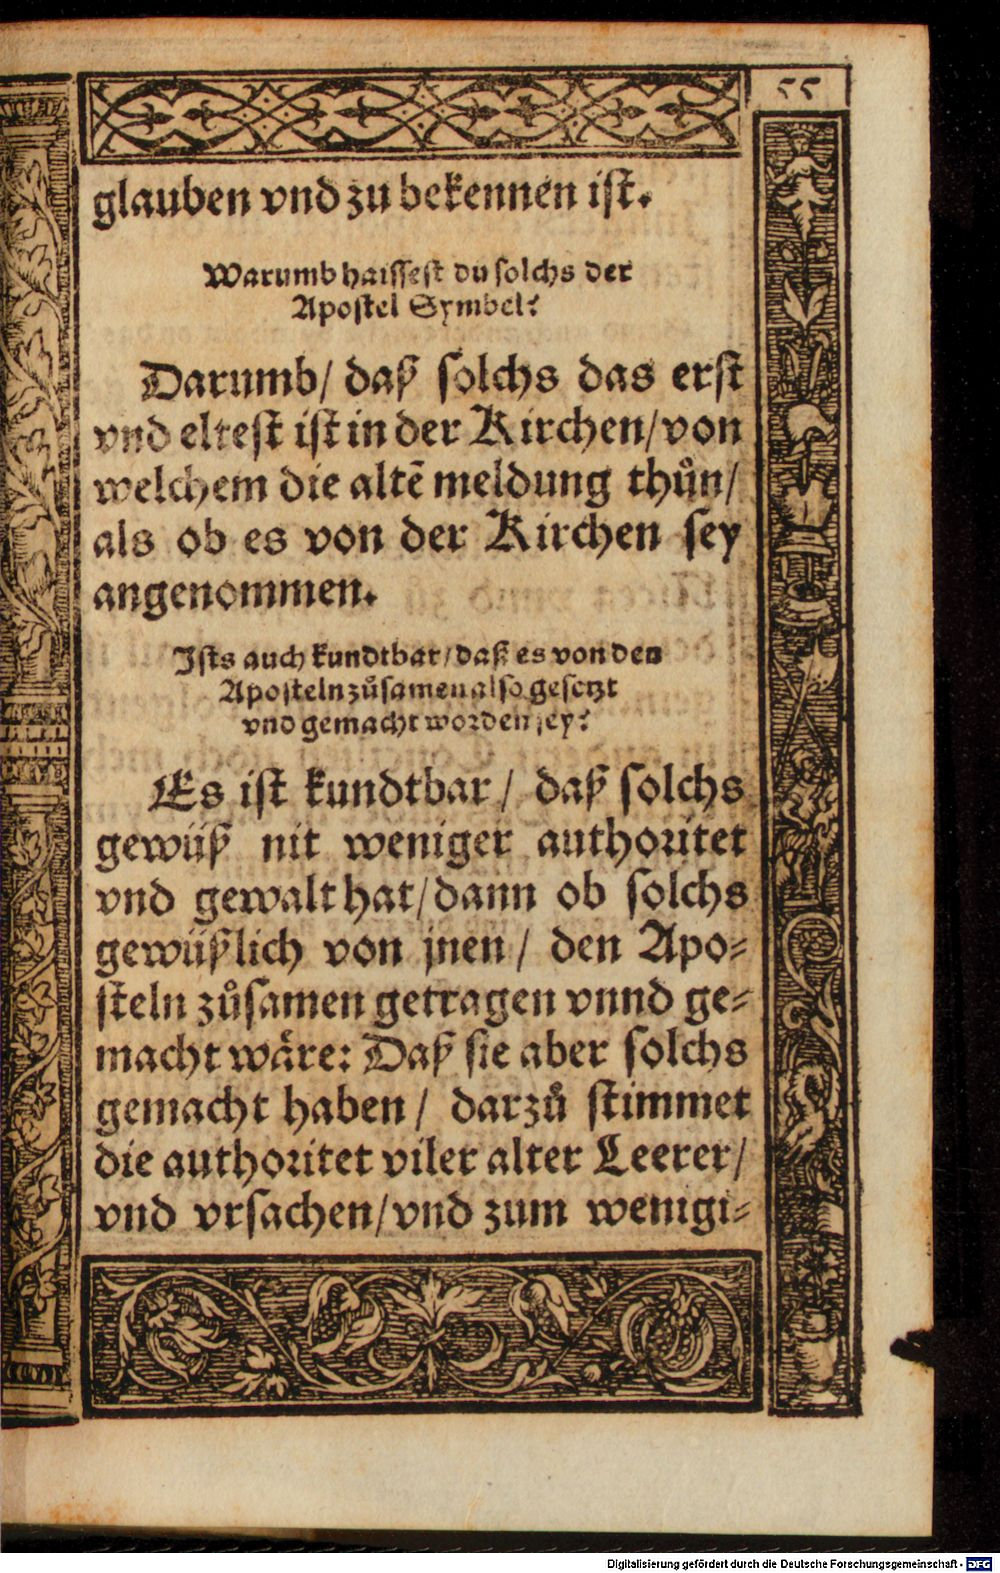 55
glauben vnd zu bekennen ist.
Warumb haissest du solchs der
Apostel Symbel?
Darumb/ daß solchs das erst
vnd eltest ist in der Kirchen/von
welchem die altẽ meldung thůn/
als ob es von der Kirchen sey
angenommen.
Ists auch kundtbar/daß es von den
Aposteln zůsamen also gesetzt
vnd gemacht worden sey?
Es ist kundtbar/ daß solchs
gewüß nit weniger authoritet
vnd gewalt hat/dann ob solchs
gewüßlich von jnen/ den Apo-
steln zůsamen getragen vnnd ge-
macht wäre: Daß sie aber solchs
gemacht haben/ darzů stimmet
die authoritet viler alter Leerer/
vnd vrsachen/vnd zum wenigi-
Digitalisierung gefördert durch die Deutsche Forschungsgemeinschaft - DFG